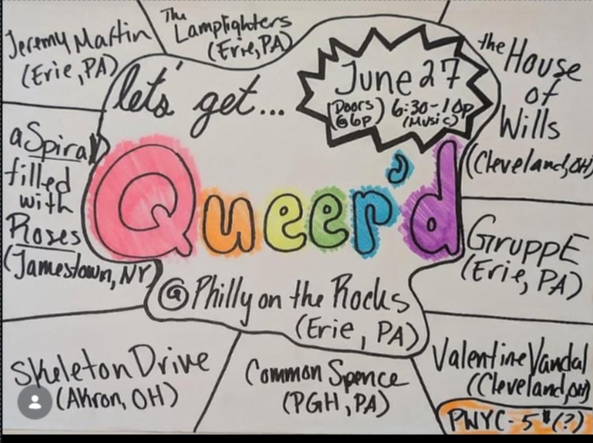 Jeremy Martin
(Erie, PA)
The
Lamplighters
(Erie, PA)
let's get...
June 27
(Doors @ 6p) 6:30-10p
(Music)
the House
of
Wills
(Cleveland, OH)
a Spiral
filled
with
Roses
(Jamestown, NY)
Queer'd
@ Philly on the Rocks
(Erie, PA)
GruppE
(Erie, PA)
Skeleton Drive
(Akron, OH)
Common Spence
(PGH, PA)
Valentine Vandal
(Cleveland, OH)
PWYC - 5$ (?)